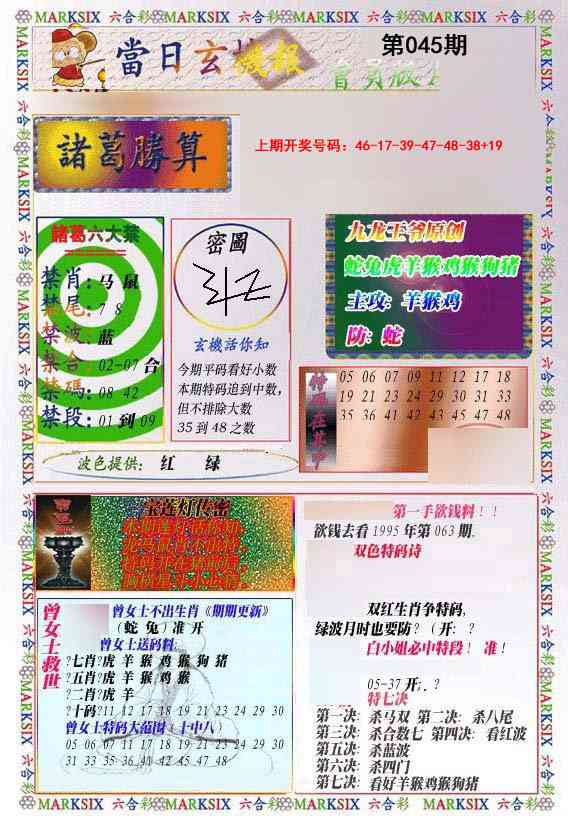 MARKSIX 六合彩 MARKSIX 六合彩 MARKSIX 六合彩 MARKSIX 六合彩 MARKSIX
當日玄機報
第045期
諸葛勝算
上期开奖号码：46-17-39-47-48-38+19
諸葛六大禁
禁肖：马鼠
禁尾：7 8
禁波：蓝
禁合：02-07合
禁碼：08 42
禁段：01到09
密圖
玄機活你知
今期平码看好小数
本期特码追到中数，
但不排除大数
35到48之数
九龙王爷原创
蛇兔虎羊猴鸡猴狗猪
主攻：羊猴鸡
防：蛇
05 06 07 09 11 12 17 18
19 21 23 24 29 30 31 33
35 36 41 42 43 45 47 48
波色提供：红 绿
宝莲灯传密
第一手欲钱料！！
欲钱去看1995年第063期.
双色特码诗
双红生肖争特码，
绿波月时也要防？（开：？
白小姐必中特段！ 准！
05-37开:．？
特七决
第一决：杀马双 第二决：杀八尾
第三决：杀合数七 第四决：看红波
第五决：杀蓝波
第六决：杀四门
第七决：看好羊猴鸡猴狗猪
曾女士救世
曾女士不出生肖《期期更新》
（蛇 兔）准 开
曾女士送码料:
?七肖?虎 羊 猴 鸡 猴 狗 猪
?五肖?虎 羊 猴 鸡 猴
?二肖?虎 羊
?十码?11 12 17 18 19 21 23 24 29 30
曾女士特码大范围（十中八）
05 06 07 11 12 17 18 19 21 23 24 29 30
31 33 35 36 41 42 45 47 48
MARKSIX 六合彩 MARKSIX 六合彩 MARKSIX 六合彩 MARKSIX 六合彩 MARKSIX